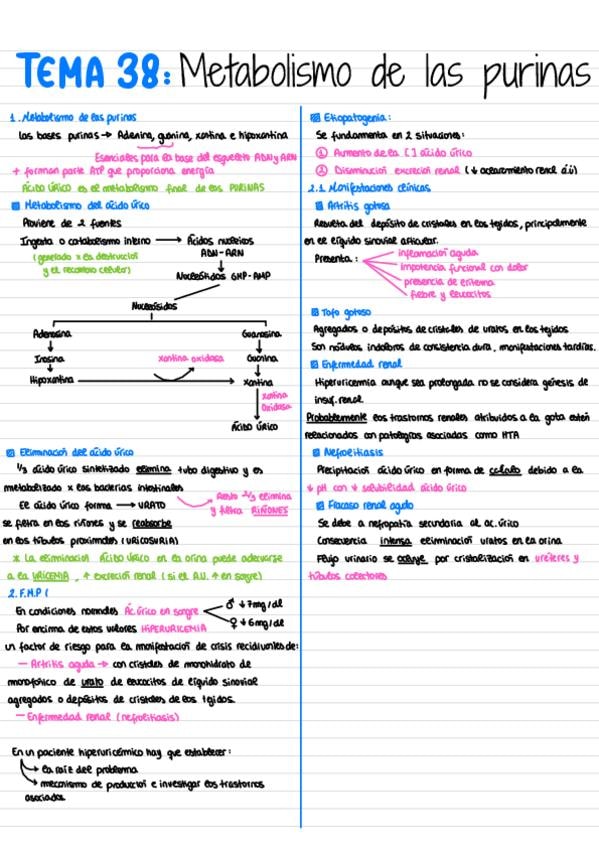 TEMA 38: Metabolismo de las purinas
1. Metabolismo de las purinas
Las bases purinas → Adenina, guanina, xantina e hipoxantina
Esenciales para la base del esqueleto ADN y ARN
+ forman parte ATP que proporciona energía
ÁCIDO ÚRICO es el metabolismo final de las PURINAS
Metabolismo del ácido úrico
Proviene de 2 fuentes
Ingesta o catabolismo interno → Ácidos nucleicos
(generado x la destrucción
ADN - ARN
y el recambio celular)
Nucleótidos GMP - AMP
Nucleósidos
Adenosina
Guanosina
Inosina
xantina oxidasa
Guanina
Hipoxantina
xantina
xantina
oxidasa
ÁCIDO ÚRICO
Eliminación del ácido úrico
1/3 ácido úrico sintetizado elimina tubo digestivo y es
metabolizado x las bacterias intestinales
El ácido úrico forma → URATO
Resto 2/3 elimina
y filtra RIÑONES
se filtra en los riñones y se reabsorbe
en los túbulos proximales (URICOSURIA)
* La eliminación ÁCIDO ÚRICO en la orina puede adecuarse
a la URICEMIA, ↑ excreción renal (si el A.U. ↑ en sangre)
2. F.M.P (
En condiciones normales Ác. úrico en sangre
♂ ↓ 7mg/dl
♀ ↓ 6mg/dl
Por encima de estos valores HIPERURICEMIA
un factor de riesgo para la manifestación de crisis recidivantes de:
- Artritis aguda → con cristales de monohidrato de
monosódico de urato de leucocitos de líquido sinovial
agregados o depósitos de cristales de los tejidos.
- Enfermedad renal (nefrolitiasis)
En un paciente hiperuricémico hay que establecer:
→ la raíz del problema
→ mecanismo de producción e investigar los trastornos
asociados
Etiopatogenia:
Se fundamenta en 2 situaciones:
1 Aumento de la [ ] ácido úrico
2 Disminución excreción renal (↓ aclaramiento renal á.ú)
2.1 Manifestaciones clínicas
Artritis gotosa
Resulta del depósito de cristales en los tejidos, principalmente
en el líquido sinovial articular.
Presenta:
inflamación aguda
impotencia funcional con dolor
presencia de eritema
fiebre y leucocitos
Tofo gotoso
Agregados o depósitos de cristales de uratos en los tejidos
Son nódulos indoloros de consistencia dura, manifestaciones tardías.
Enfermedad renal
Hiperuricemia aunque sea prolongada no se considera génesis de
insuf. renal.
Probablemente los trastornos renales atribuidos a la gota estén
relacionados con patologías asociadas como HTA
Nefrolitiasis
Precipitación ácido úrico en forma de cálculo debido a la
↓ pH con ↓ solubilidad ácido úrico
Fracaso renal agudo
Se debe a nefropatía secundaria al ac. úrico
Consecuencia intensa eliminación uratos en la orina
Flujo urinario se ocluye por cristalización en uréteres y
túbulos colectores